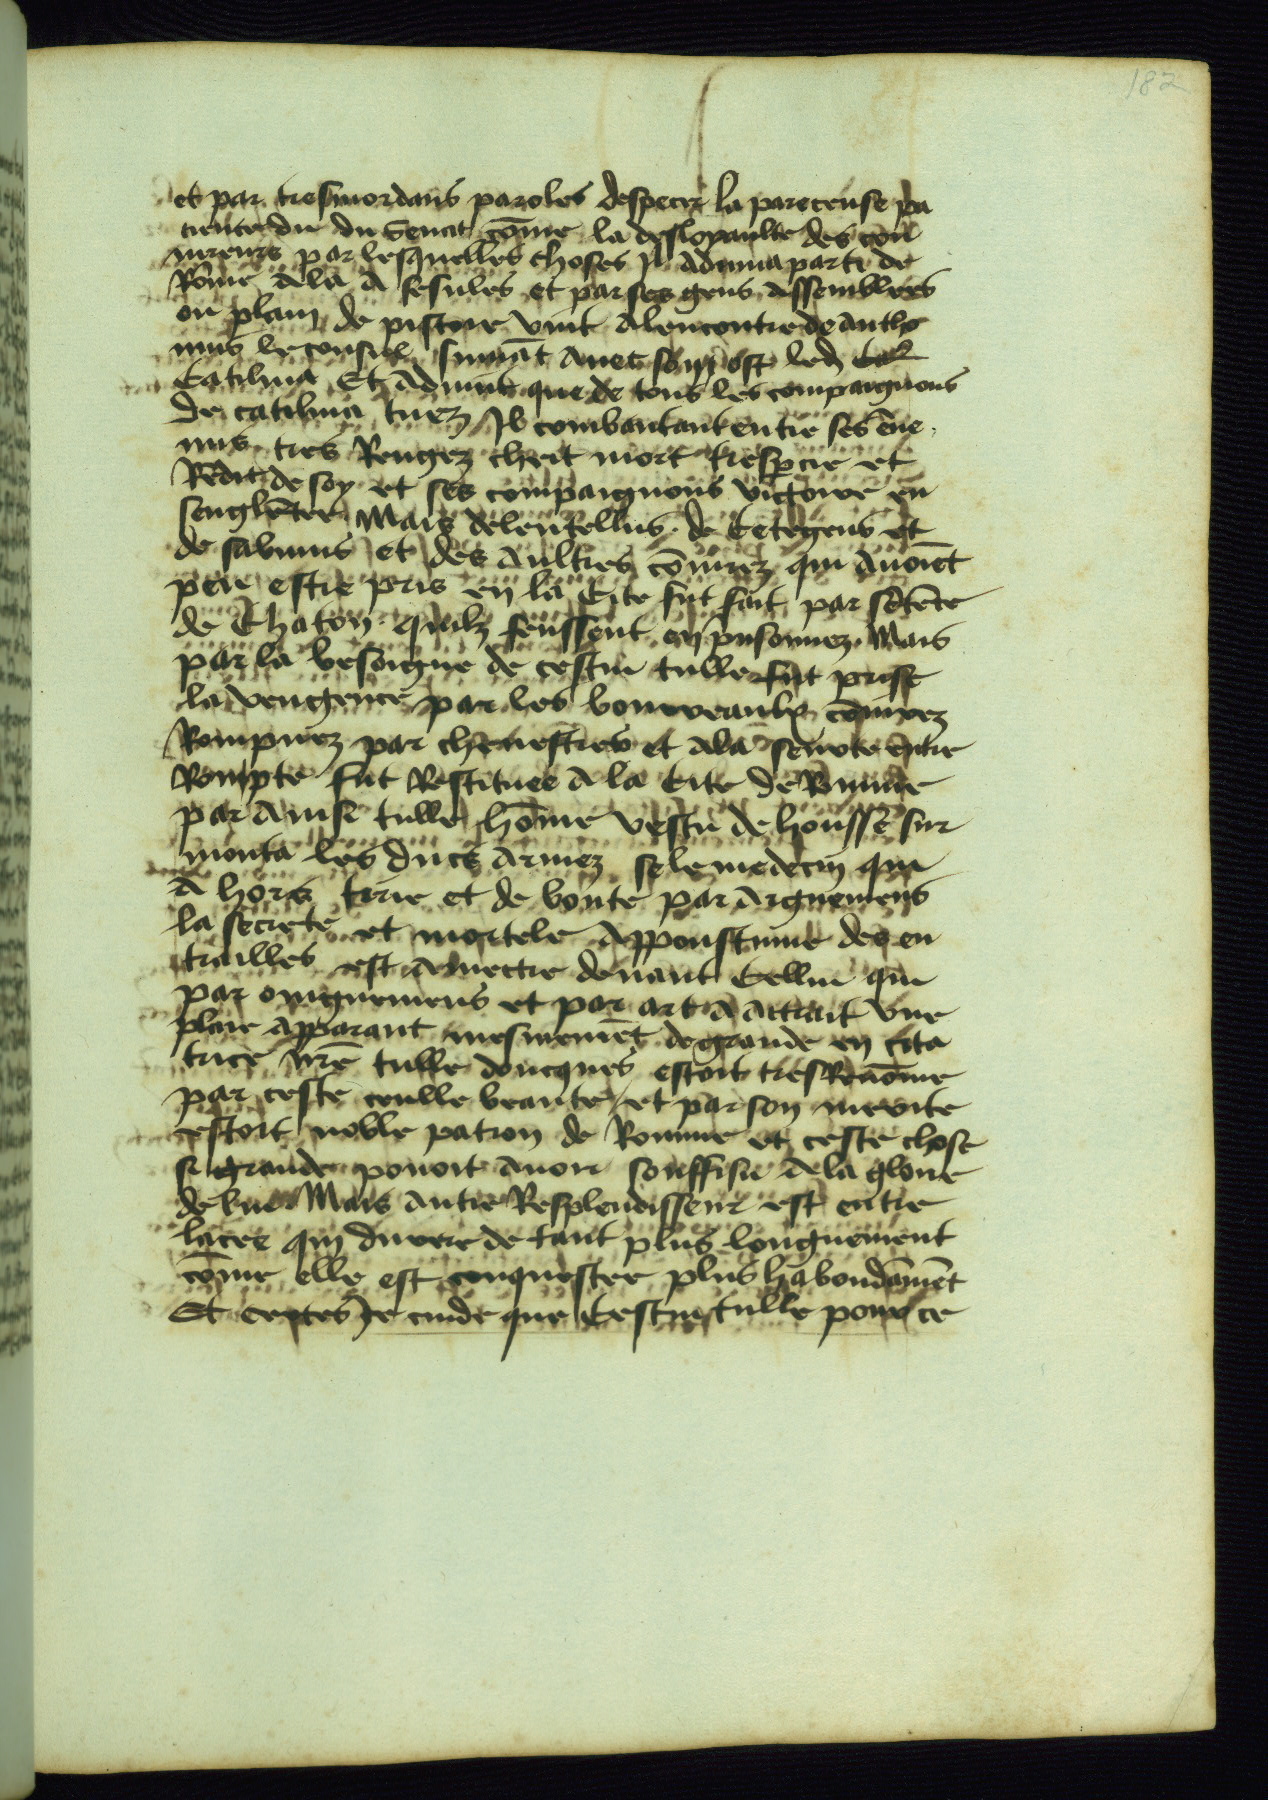 182
et par tresmordans paroles despecer la pareceuse pa
cience du du Senat cōme la desloyaulte des con
iureurs par lesquelles choses Il aduint parti de
Rōme ala a fesules et par ses gens assemblees
on plain de pistoie vint alencontre de antho
nius le consul suiuāt auec son ost led
Catilina Et aduint que de tous les compaignons
de catilina tuez Il combautant entre ses ēne
mis tres Rengez cheit mort tresperce et
Rēdit de soy et ses compaignons victoire en
senglētee Mais de lentellus de Cetegeus et
de sabinus et des aultres cōiurez qui auoiēt
peu estre pris en la Cite fut fait par sētēce
de Chaton quilz feussent enprisonnez Mais
par la besoigne de cestui tulle fut prise
la vengence par les bourreaulx cōiurez
Rompuez par cheuestres et ala seurte entre
Rompte fut Restituee a la Cite de Romme
par ainsi tulle hōme vestu de housse sur
monta les ducs armez se le medecin qui
a hors tirie et de boute par arguemens
la secrete et mortele appoustume des en
trailles est amectre deuant Cellui qui
par oinguemens et par art a attrait vne
plaie apparant mesmemēt de grande en cica
trice nre tulle doncques estoit tres Renōme
par ceste ceulle beaute et par son merite
estoit noble patron de Romme et ceste chose
si grande pouoit auoir souffisu a la gloire
de lui Mais autre Resplendisseur est entre
lacee qui durere de tant plus longuement
cōme elle est conquestee plus habondāmēt
Et certes Je cuide que Cestui tulle pour ce